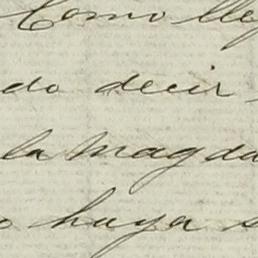 Como lle
do decir
la Magda
o haya s